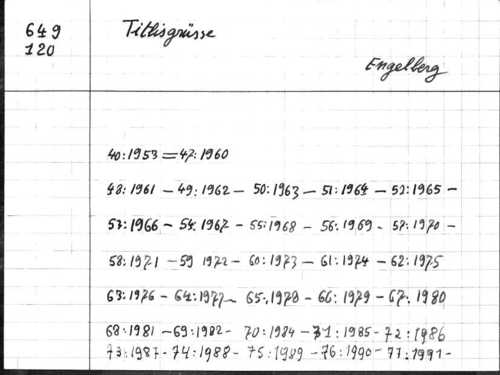 649
120
Titlisgrüsse
Engelberg
40:1953 = 47:1960
48:1961 - 49:1962 - 50:1963 - 51:1964 - 52:1965 -
53:1966 - 54:1967 - 55:1968 - 56:1969 - 57:1970 -
58:1971 - 59 1972 - 60:1973 - 61:1974 - 62:1975
63:1976 - 64:1977 - 65:1978 - 66:1979 - 67:1980
68:1981 - 69:1982 - 70:1984 - 71:1985 - 72:1986
73:1987 - 74:1988 - 75:1989 - 76:1990 - 77:1991 -